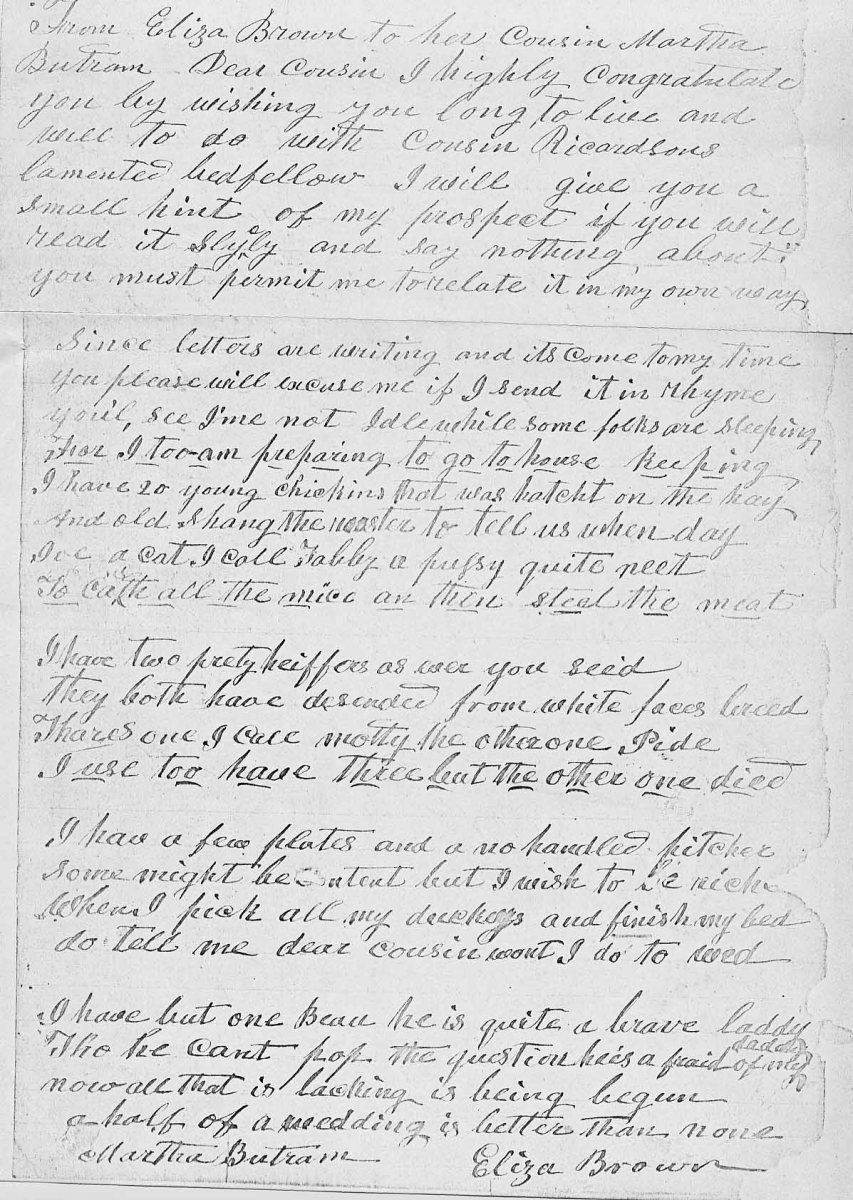 From Eliza Brown to her Cousin Martha
Butram Dear Cousin I highly Congratulate
you by wishing you long to live and
well to do with Cousin Ricardsons
lamented bedfellow I will give you a
small hint of my prospect if you will
read it slyly and say nothing about it
you must permit me to relate it in my own way
Since letters are writing and its come to my time
you please will excuse me if I send it in rhyme
you'l, see I'me not Idle while some folks are sleeping
For I too am preparing to go to house keeping
I have 20 young chickins that was hatcht on the hay
And old shang the roaster to tell us when day
Ive a cat I call Tabby a pussy quite neet
To catch all the mice an then steel the meat
I have two prety heiffers as ever you see'd
they both have desended from white faces breed
Thares one I call motty the other one Pide
I use too have three but the other one died
I hav a few plates and a no handled pitcher
some might be content but I wish to be richer
When I pick all my duckeys and finish my bed
do tell me dear cousin wont I do to wed
I have but one Beau he is quite a brave laddy
Tho he cant pop the question hees afraid of my daddy
now all that is lacking is being begun
a half of a wedding is better than none
Martha Butram Eliza Brown